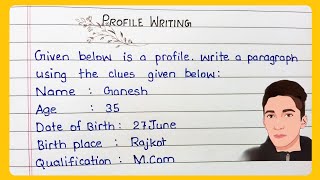 PROFILE WRITING
Given below is a profile. Write a paragraph
using the clues given below:
Name : Ganesh
Age : 35
Date of Birth: 27June
Birth place : Rajkot
Qualification: M.Com